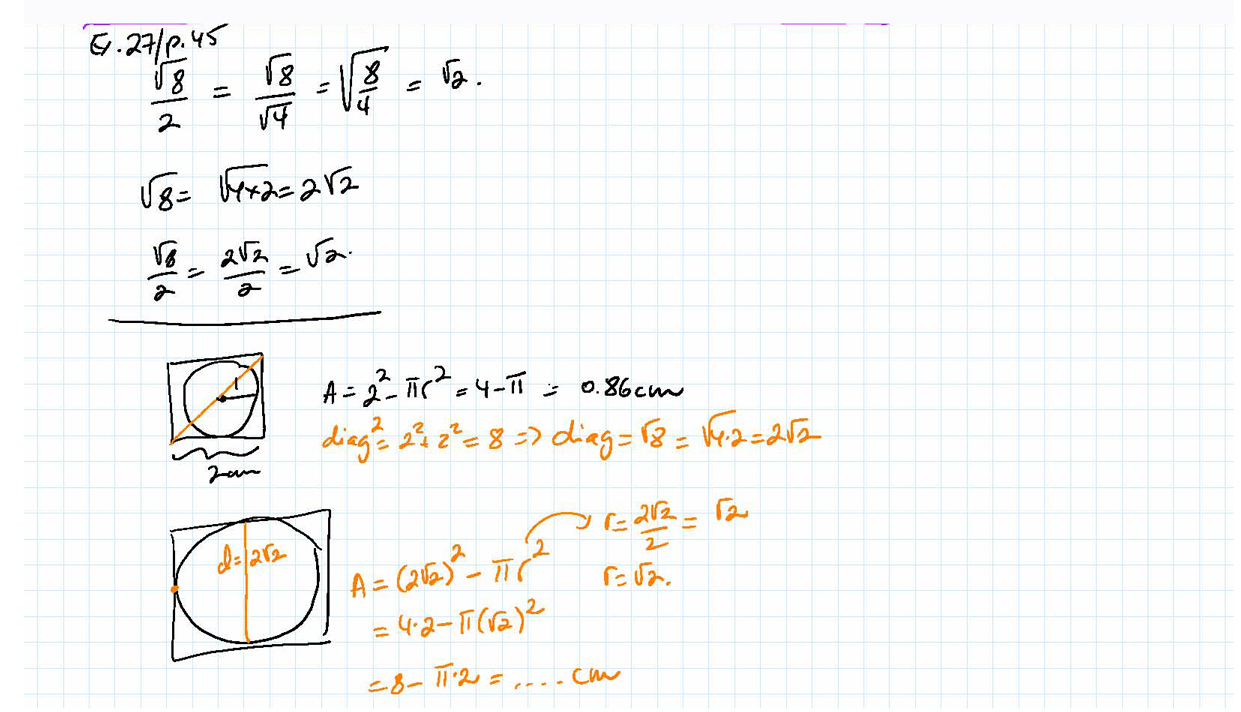 Ex.27/p.45
√8/2 = √8/√4 = √(8/4) = √2.
√8 = √(4×2) = 2√2
√8/2 = 2√2/2 = √2.
1
A = 2² - πr² = 4 - π = 0.86cm
diag² = 2² + 2² = 8 => diag = √8 = √(4·2) = 2√2
2cm
r = 2√2/2 = √2
d = 2√2
A = (2√2)² - πr²
r = √2.
= 4·2 - π(√2)²
= 8 - π·2 = ..... cm